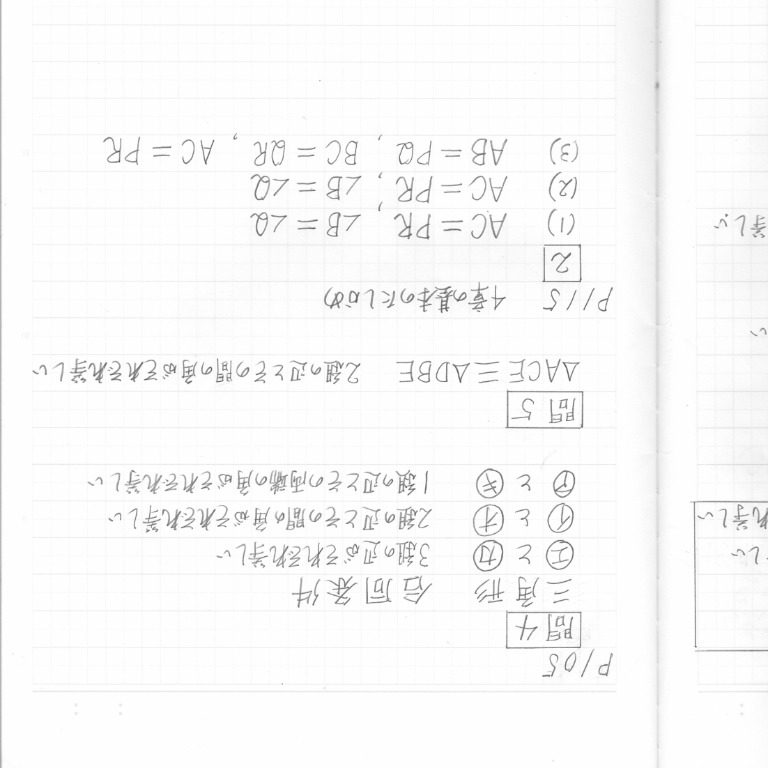 しい
れ等しい
い
等しい
P105
問4
三角形 合同条件
㋓と㋕ 3組の辺がそれぞれ等しい
㋑と㋔ 2組の辺とその間の角がそれぞれ等しい
㋐と㋖ 1組の辺とその両端の角がそれぞれ等しい
問5
△ACE≡△DBE 2組の辺とその間の角がそれぞれ等しい
P115 4章の基本のたしかめ
2
(1) AC=PR, ∠B=∠Q
(2) AC=PR, ∠B=∠Q
(3) AB=PQ, BC=QR, AC=PR